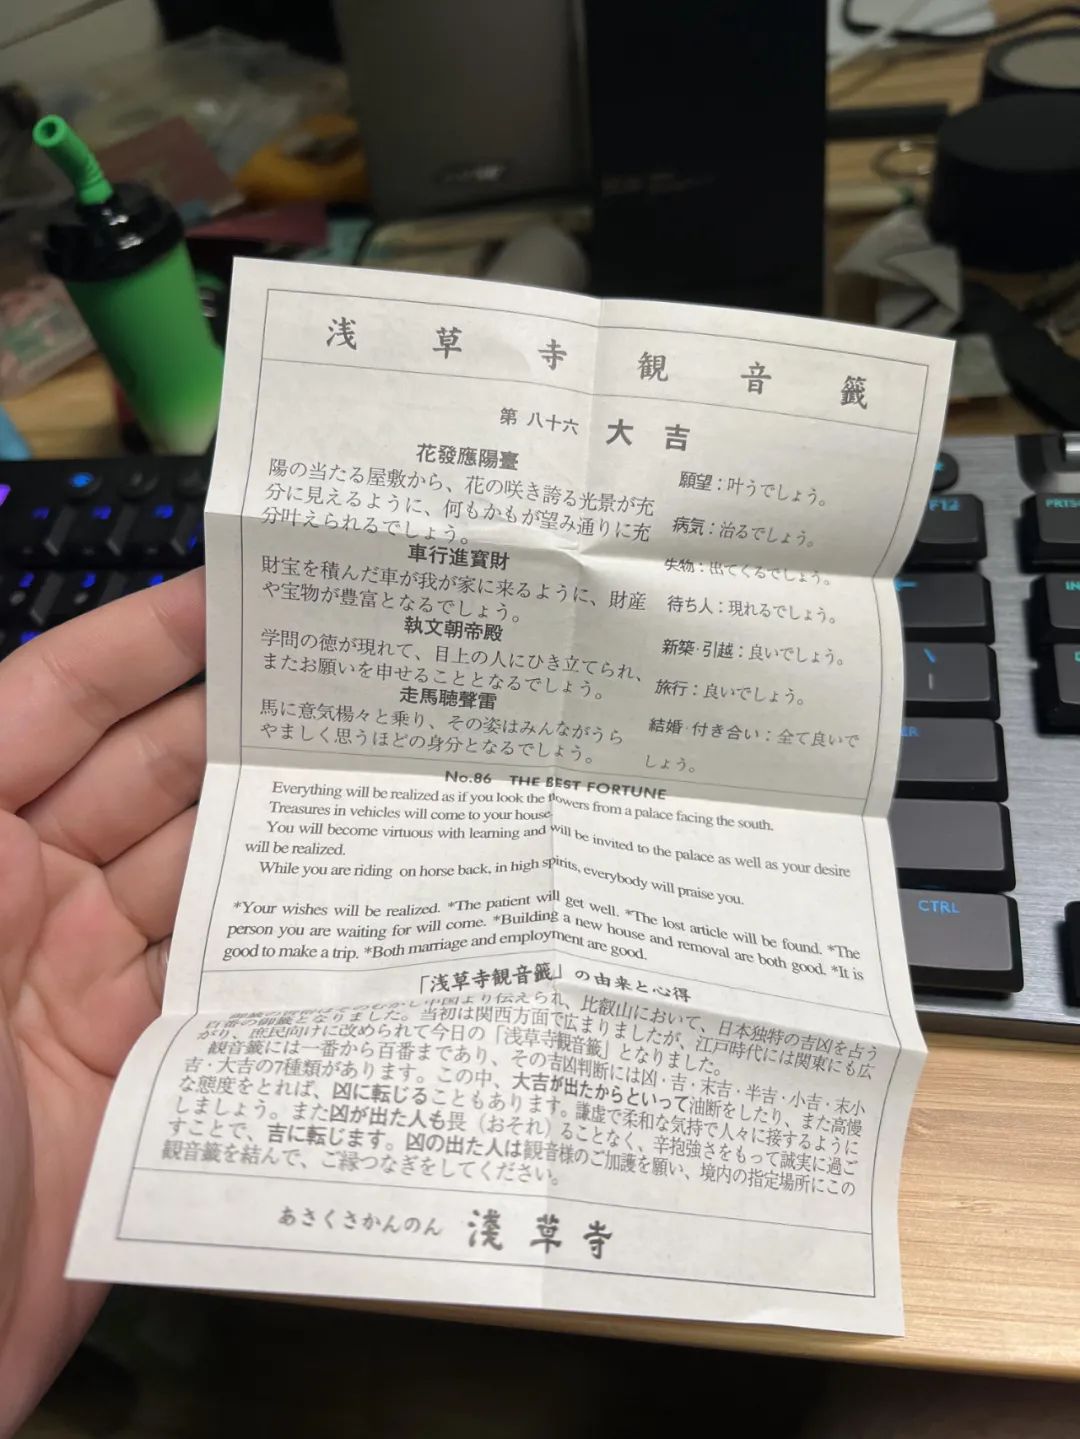 浅草寺観音籤
第八十六 大吉
花發應陽臺
陽の当たる屋敷から、花の咲き誇る光景が充
分に見えるように、何もかもが望み通りに充
分叶えられるでしょう。
車行進寳財
財宝を積んだ車が我が家に来るように、財産
や宝物が豊富となるでしょう。
執文朝帝殿
学問の徳が現れて、目上の人にひき立てられ、
またお願いを申せることとなるでしょう。
走馬聴聲雷
馬に意気楊々と乗り、その姿はみんながうら
やましく思うほどの身分となるでしょう。
願望:叶うでしょう。
病気:治るでしょう。
失物:出てくるでしょう。
待ち人:現れるでしょう。
新築·引越:良いでしょう。
旅行:良いでしょう。
結婚·付き合い:全て良いで
しょう。
No.86 THE BEST FORTUNE
Everything will be realized as if you look the flowers from a palace facing the south.
Treasures in vehicles will come to your house.
You will become virtuous with learning and will be invited to the palace as well as your desire
will be realized.
While you are riding on horse back, in high spirits, everybody will praise you.
*Your wishes will be realized. *The patient will get well. *The lost article will be found. *The
person you are waiting for will come. *Building a new house and removal are both good. *It is
good to make a trip. *Both marriage and employment are good.
「浅草寺観音籤」の由来と心得
中国より伝えられ、比叡山において、日本独特の吉凶を占う
百番の御籤となりました。当初は関西方面で広まりましたが、江戸時代には関東にも広
がり、庶民向けに改められて今日の「浅草寺観音籤」となりました。
観音籤には一番から百番まであり、その吉凶判断には凶·吉·末吉·半吉·小吉·末小
吉·大吉の7種類があります。この中、大吉が出たからといって油断をしたり、また高慢
な態度をとれば、凶に転じることもあります。謙虚で柔和な気持で人々に接するように
しましょう。また凶が出た人も畏(おそれ)ることなく、辛抱強さをもって誠実に過ご
すことで、吉に転じます。凶の出た人は観音様のご加護を願い、境内の指定場所にこの
観音籤を結んで、ご縁つなぎをしてください。
あさくさかんのん 淺草寺
F12
PRTS
IN
\
CTRL